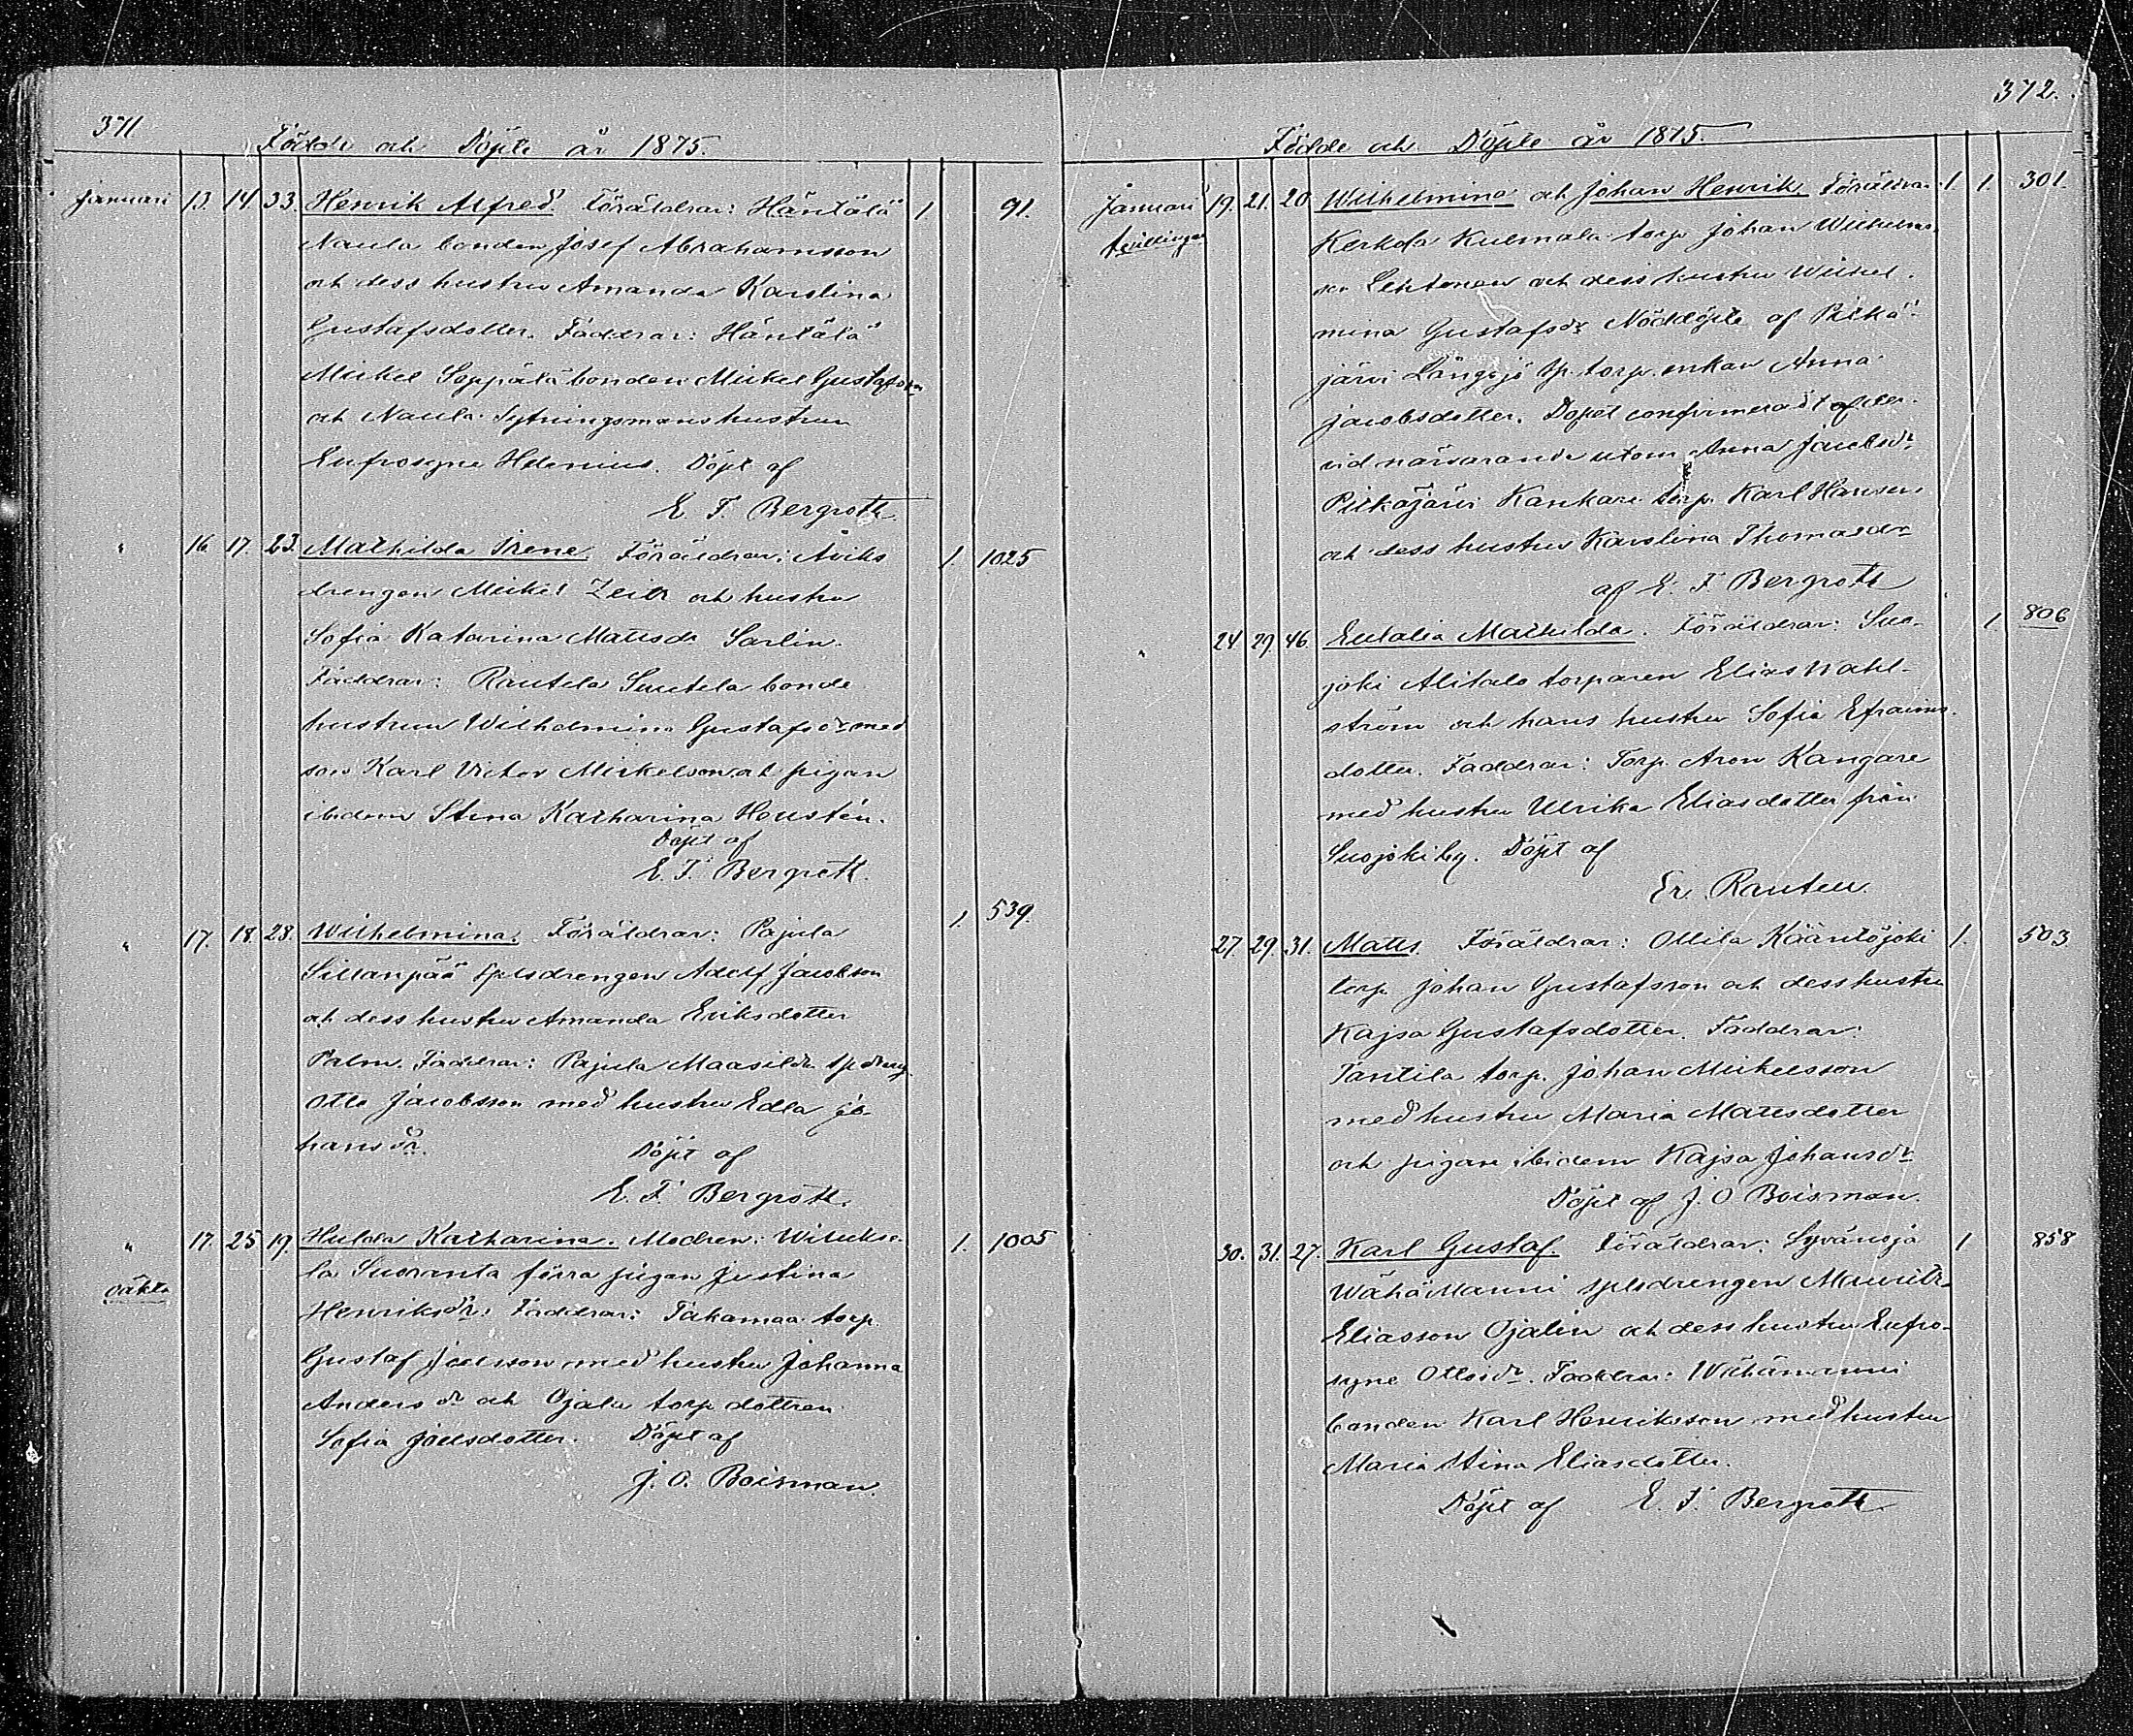 371
Födde och Döpte år 1875.
Januari 13. 14. 33. Henrik Alfred Föräldrar: Häntälä 1. 91.
Naula bonden Josef Abrahamsson
och dess hustru Amanda Karolina
Gustafsdotter. Faddrar: Häntälä
Mickel Seppälä bonden Mickel Gustafsson
och Naula Sytningsmanshustrun
Eufrosyne Helenius. Döpt af
E. F. Bergroth.
" 16. 17. 23. Mathilda Irene. Föräldrar: Åviks 1. 1025
drengen Mickel Zeitz och hustru
Sofia Katarina Mattsdr Sarlin.
Faddrar: Rautela Suutela bonde
hustrun Wilhelmina Gustafsdr med
son Karl Victor Mickelson och pigan
ibidem Stina Katharina Housten.
Döpt af
E. F. Bergroth.
" 17. 18. 28. Wilhelmina. Föräldrar: Pajula 1. 539.
Sillanpää splsdrengen Adolf Jacobson
och dess hustru Amanda Eriksdotter
Palm. Faddrar: Pajula Maasilda spdreng.
Otto Jacobsson med hustru Edla Jo-
hansdr. Döpt af
E. F. Bergroth.
" 17. 25 19. Hulda Katharina. Modren: Wilukse- 1. 1005
oäkta la Suoranta förra pigan Justina
Henriksdr. Faddrar: Takamaa torp.
Gustaf Joelsson med hustru Johanna
Andersdr och Ojala torp dottren
Sofia Joelsdotter. Döpt af
J. O. Boisman.
372.
Födde och Döpte år 1875.
Januari 19. 21. 20 Wilhelmina och Johan Henrik Föräldrar: 1. 1. 301.
tvillingar Kerkola Kulmala torp Johan Wilhelms-
son Lehtonen och dess hustru Wilhel-
mina Gustafsdr Nöddöpte af Pitkä-
järvi Långsjö sp. torp. enkan Anna
Jacobsdotter. Dopet confirmeradt efter
vid närvarande utom Anna Jacobsdr
Pitkäjärvi Kankare torp. Karl Hansson
och dess hustru Karolina Thomasdr
af E. F. Bergroth
" 24 29. 46. Eulalia Mathilda. Föräldrar: Suo- 1. 806
joki Alitalo torparen Elias Wahl-
ström och hans hustru Sofia Efraims-
dotter. Faddrar: Torp. Aron Kangare
med hustru Ulrika Eliasdotter från
Suojoki by. Döpt af
Er. Rauten
27. 29. 31. Matts. Föräldrar: Ollila Kääntöjoki 1. 503
torp. Johan Gustafsson och dess hustru
Kajsa Gustafsdotter. Faddrar:
Tantila torp. Johan Mickelsson
med hustru Maria Mattsdotter
och pigan ibidem Kajsa Johansdr
Döpt af J. O. Boisman.
30. 31. 27. Karl Gustaf. Föräldrar: Syvänoja 1 858
Wähä Manni splsdrengen Mauritz
Eliasson Ojalin och dess hustru Eufro-
syne Ottosdr. Faddrar: Wähämanni
bonden Karl Henriksson med hustru
Maria Stina Eliasdotter.
Döpt af E. F. Bergroth